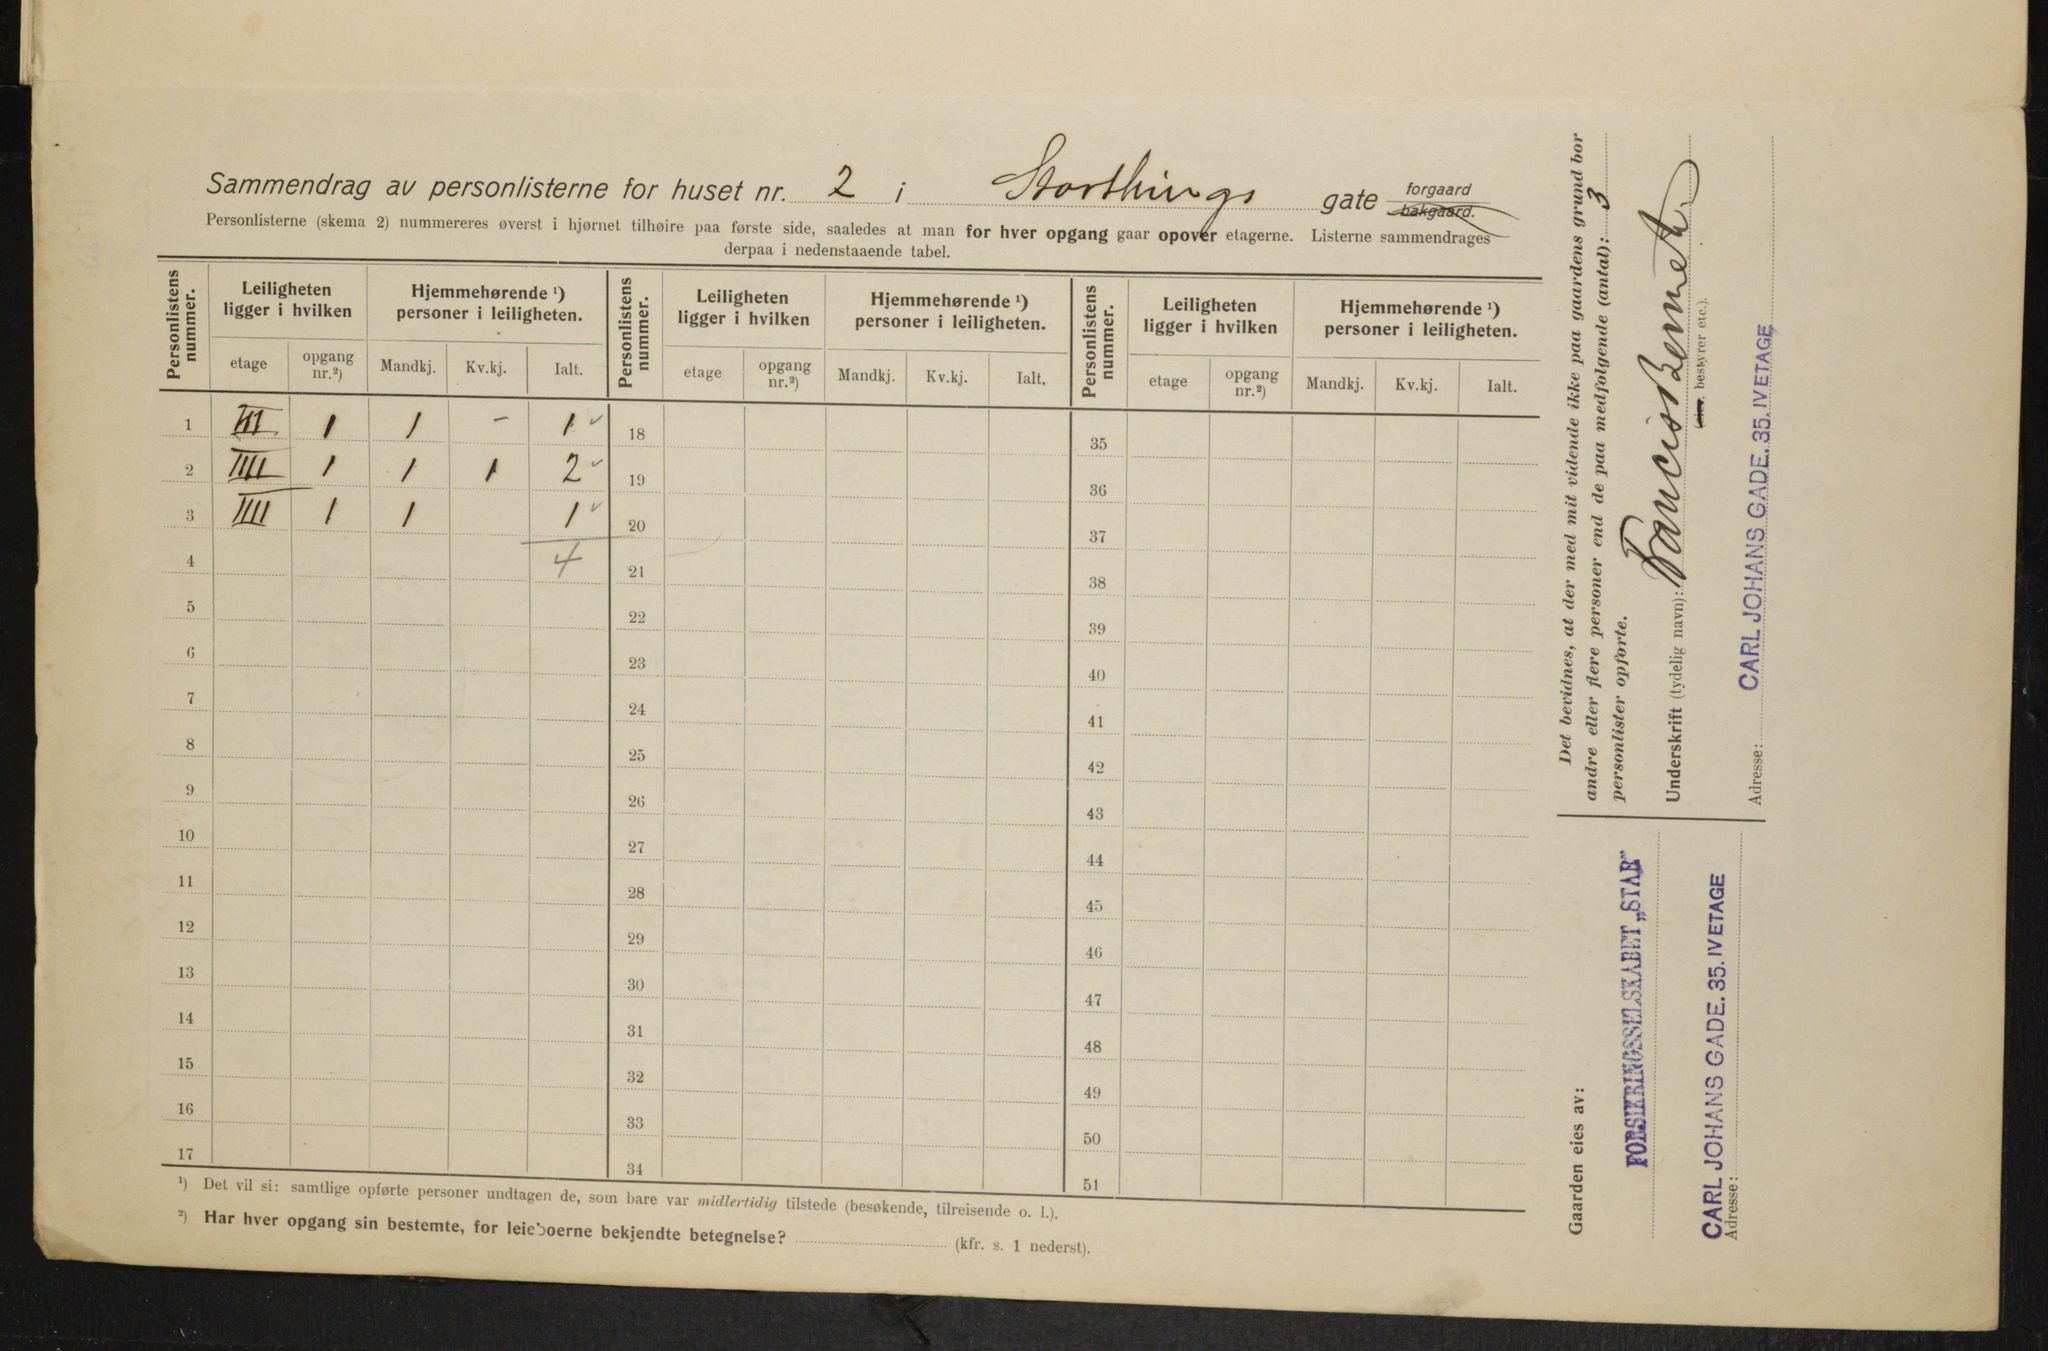 Sammendrag av personlisterne for huset nr. 2 i Storthings gate forgaard bakgaard.
Personlisterne (skema 2) nummereres øverst i hjørnet tilhøire paa første side, saaledes at man for hver opgang gaar opover etagerne. Listerne sammendrages
derpaa i nedenstaaende tabel.
Personlistens nummer. Leiligheten ligger i hvilken Hjemmehørende ¹) personer i leiligheten. Personlistens nummer. Leiligheten ligger i hvilken Hjemmehørende ¹) personer i leiligheten. Personlistens nummer. Leiligheten ligger i hvilken Hjemmehørende ¹) personer i leiligheten.
etage opgang nr.²) Mandkj. Kv.kj. Ialt. etage opgang nr.²) Mandkj. Kv.kj. Ialt. etage opgang nr.²) Mandkj. Kv.kj. Ialt.
1 III 1 1 - 1 ✓ 18 35
2 IIII 1 1 1 2 ✓ 19 36
3 IIII 1 1 1 ✓ 20 37
4 4 21 38
5 22 39
6 23 40
7 24 41
8 25 42
9 26 43
10 27 44
11 28 45
12 29 46
13 30 47
14 31 48
15 32 49
16 33 50
17 34 51
¹) Det vil si: samtlige opførte personer undtagen de, som bare var midlertidig tilstede (besøkende, tilreisende o. l.).
²) Har hver opgang sin bestemte, for leieboerne bekjendte betegnelse? (kfr. s. 1 nederst).
Det bevidnes, at der med mit vidende ikke paa gaardens grund bor
andre eller flere personer end de paa medfølgende (antal): 3
personlister opførte.
Underskrift (tydelig navn): Francis Bennett
bestyrer etc.).
Adresse: CARL JOHANS GADE. 35. IV ETAGE
Gaarden eies av:
FORSIKRINGSSELSKABET „STAR"
Adresse: CARL JOHANS GADE. 35. IV ETAGE